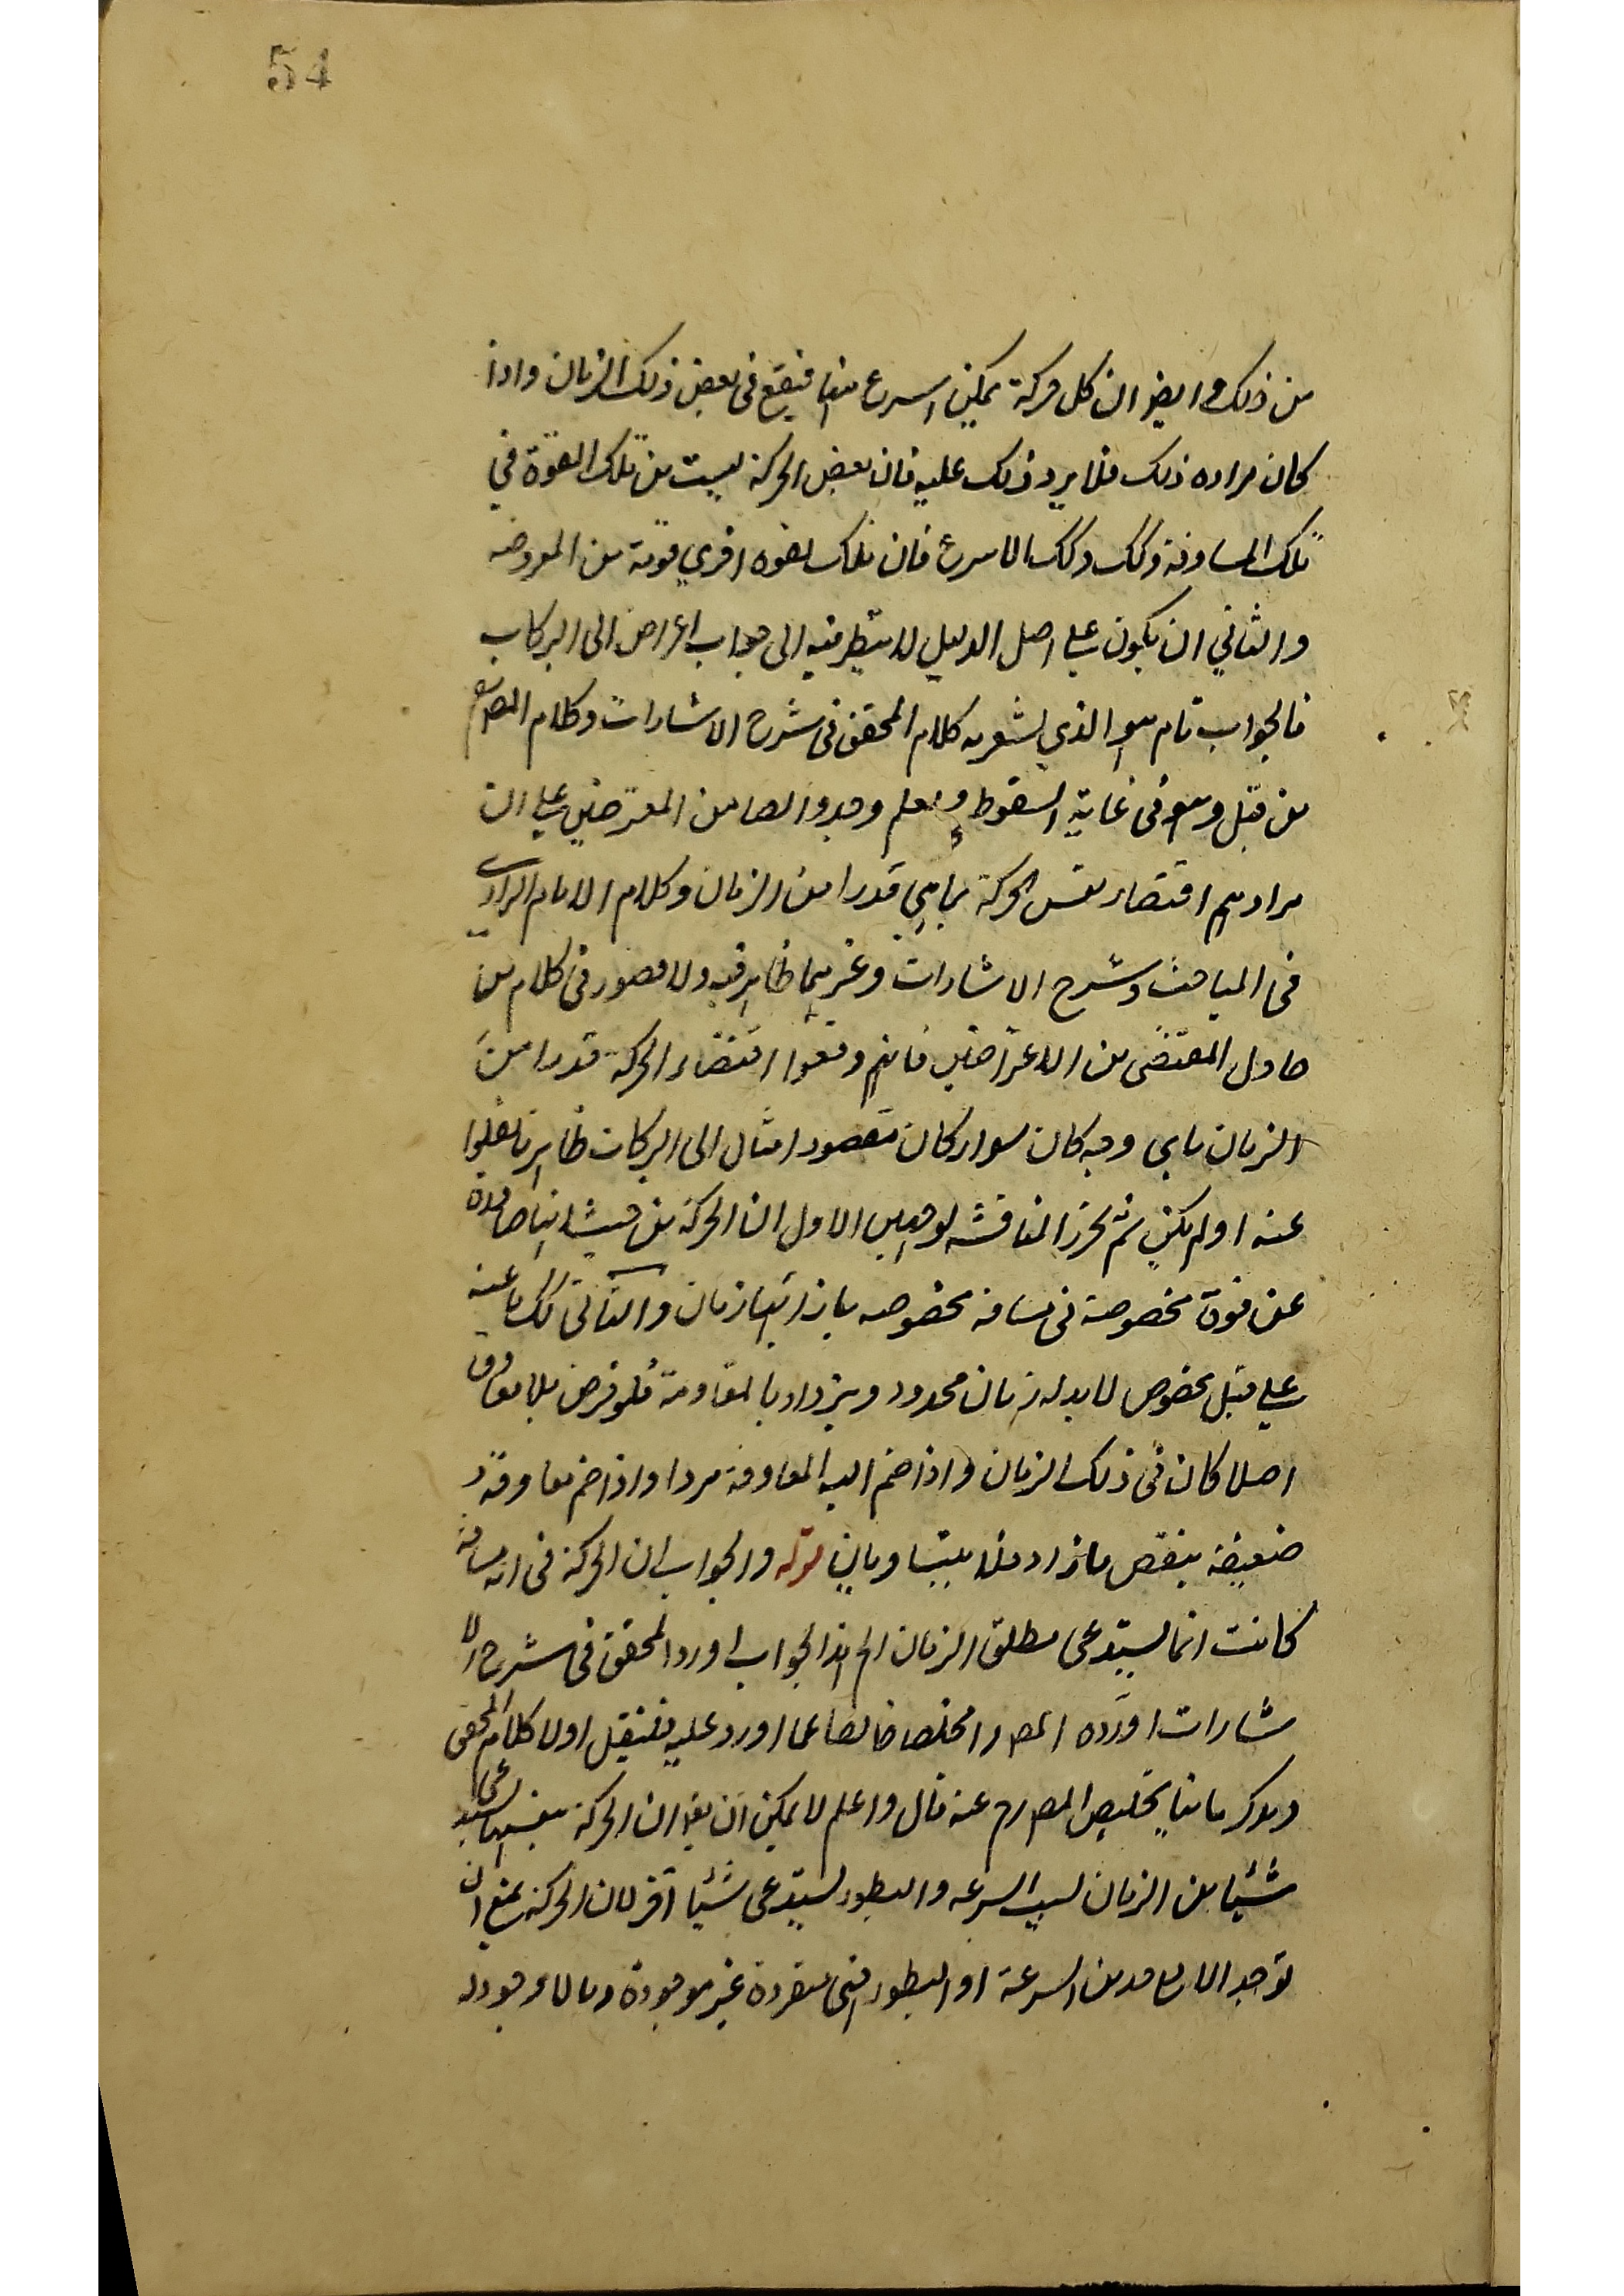 54
من ذلك وايضا ان كل حركة يمكن اسرع منها فيقع فى بعض ذلك الزمان واذا
كان مراده ذلك فلا يرد ذلك عليه فان بعض الحركة ليست من تلك القوة في
تلك المسافة وكك الاسرع فان تلك لقوه اخري من المعروضه
والثاني ان يكون علي اصل الدليل لا ينظر فيه الى جواب اعراض ابى البركات
فالجواب تام هو الذي يشعر به كلام المحقق فى شرح الاشارات وكلام المص
من قبل وهو فى غاية السقوط من المعترضين علي ان
مرادهم اقتضاء نفس الحركة بما هي قدرا من الزمان وكلام الامام الرازي
فى المباحث وشرح الاشارات وغيرهما ظاهر فيه ولا قصور فى كلام من
حاول المقتضى من الاعتراضين فانهم دفعوا اقتضاء الحركة قدرا من
الزمان باي وجه كان سواء كان مقصود امثال ابى البركات ظاهر ما نقلوا
عنه او لم يكن ثم نحرر المناقشه بوجهين الاول ان الحركة من حيث انها صادرة
عن قوة مخصوصة فى مسافة مخصوصه بازائها زمان والثانى
علي قبل مخصوص لا بد له زمان محدود ويزداد بالمقاومة فلو فرض بلا معاوق
اصلا كان فى ذلك الزمان واذا ضم اليه المعاوقة واذا ضم معاوقة
ضعيفة ينقص ما زاد فلا يتساويان قوله والجواب ان الحركة فى اي مسافة
كانت انما يستدعى مطلق الزمان الخ هذا الجواب اورد المحقق فى شرح الا
شارات اورده المص مخلصا خالصا عما اورد عليه فلننقل اولا كلام المحقق
ونذكر ثانيا تخليص المص رح عنه قال واعلم لا يمكن ان يقال ان الحركة بنفسها يستدعى
شيئا من الزمان لسبب السرعه والبطوء يستدعى شيئا آخر لان الحركة يمتنع ان
توجد الا مع حد من السرعة او البطوء فهى مفردة غير موجودة وما لا وجود له